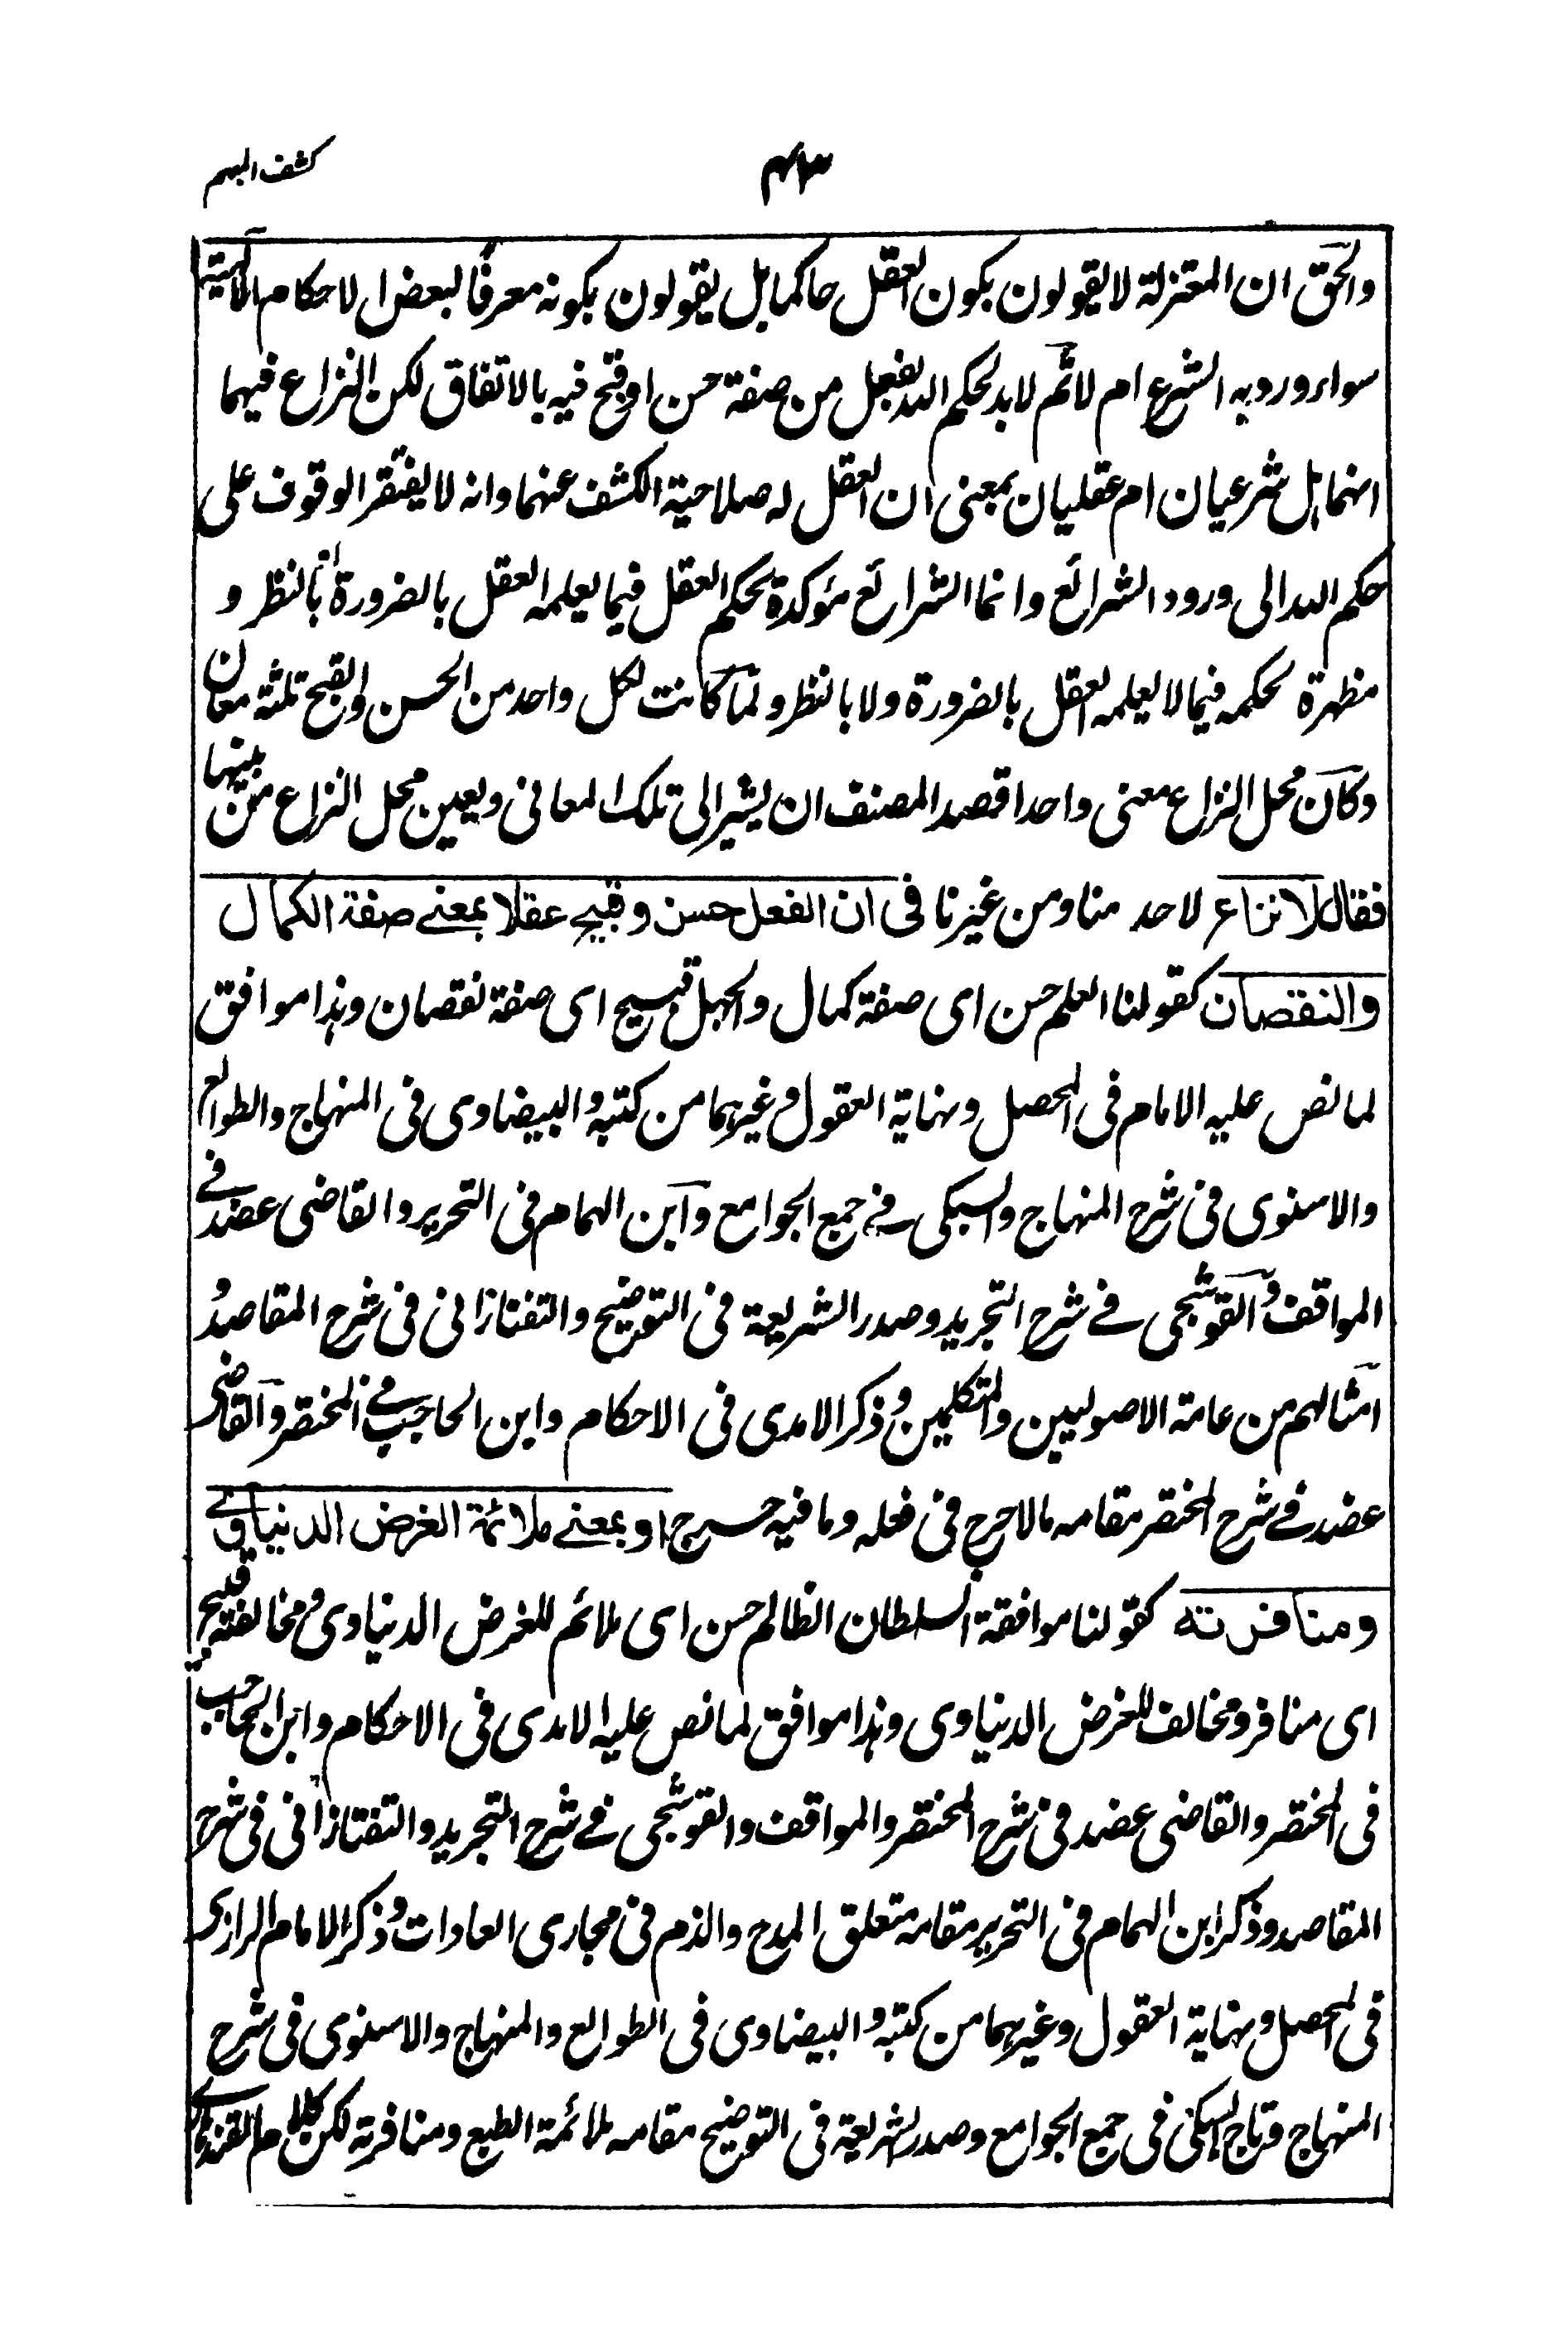 كشف المبهم
والحق ان المعتزلة لا يقولون بكون العقل حاكما بل يقولون بكونه معرفا لبعض الاحكام الالٰهية
سواء ورد به الشرع ام لا ثم لا بد لحكم الله بفعل من صفة حسن او قبح فيه بالاتفاق لكن النزاع فيهما
انهما هل شرعيان ام عقليان بمعنى ان العقل له صلاحية الكشف عنهما وانه لا يفتقر الوقوف على
حكم الله الى ورود الشرائع وانما الشرائع مؤكدة لحكم العقل فيما يعلمه العقل بالضرورة او بالنظر و
مظهرة لحكمه فيما لا يعلمه العقل بالضرورة ولا بالنظر ولما كانت لكل واحد من الحسن والقبح ثلثة معان
وكان محل النزاع معنى واحدا قصد المصنف ان يشير الى تلك المعانى ويعين محل النزاع من بينها
فقال لا نزاع لاحد منا ومن غيرنا فى ان الفعل حسن وقبيح عقلا بمعنے صفة الكمال
والنقصان كقولنا العلم حسن اى صفة كمال والجهل قبيح اى صفة نقصان وهذا موافق
لما نص عليه الامام فى المحصل ونهاية العقول وغيرهما من كتبه والبيضاوى فى المنهاج والطوالع
والاسنوى فى شرح المنهاج والسبكى فے جمع الجوامع وابن الهمام فى التحرير والقاضى عضد فے
المواقف والقوشجى فے شرح التجريد وصدر الشريعة فى التوضيح والتفتازانى فى شرح المقاصد و
امثالهم من عامة الاصوليين والمتكلمين وذكر الامدى فى الاحكام وابن الحاجب فے المختصر والقاضى
عضد فے شرح المختصر مقامه مالا حرج فى فعله وما فيه حرج او بمعنے ملائمة الغرض الدنياوے
ومنافرته كقولنا موافقة السلطان الظالم حسن اى ملائم للغرض الدنياوى ومخالفته قبيح
اى منافر ومخالف للغرض الدنياوى وهذا موافق لما نص عليه الامدى فى الاحكام وابن الحاجب
فى المختصر والقاضى عضد فى شرح المختصر والمواقف والقوشجى فے شرح التجريد والتفتازانى فى شرح
المقاصد وذكر ابن الهمام فى التحرير مقامه متعلق المدح والذم فى مجارى العادات وذكر الامام الرازى
فى المحصل ونهاية العقول وغيرهما من كتبه والبيضاوى فى الطوالع والمنهاج والاسنوى فى شرح
المنهاج وتاج السبكى فى جمع الجوامع وصدر الشريعة فى التوضيح مقامه ملائمة الطبع ومنافرته لكن كلام